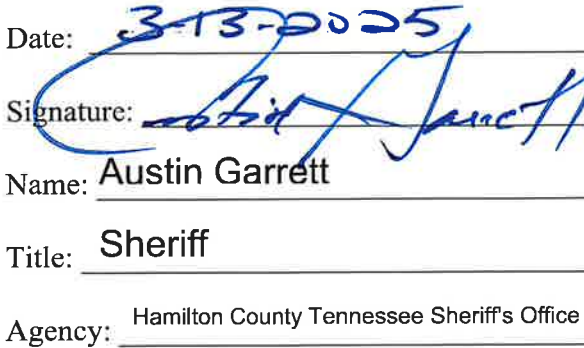 Date: 3-13-2025
Signature: Austin Garrett
Name: Austin Garrett
Title: Sheriff
Agency: Hamilton County Tennessee Sheriff's Office